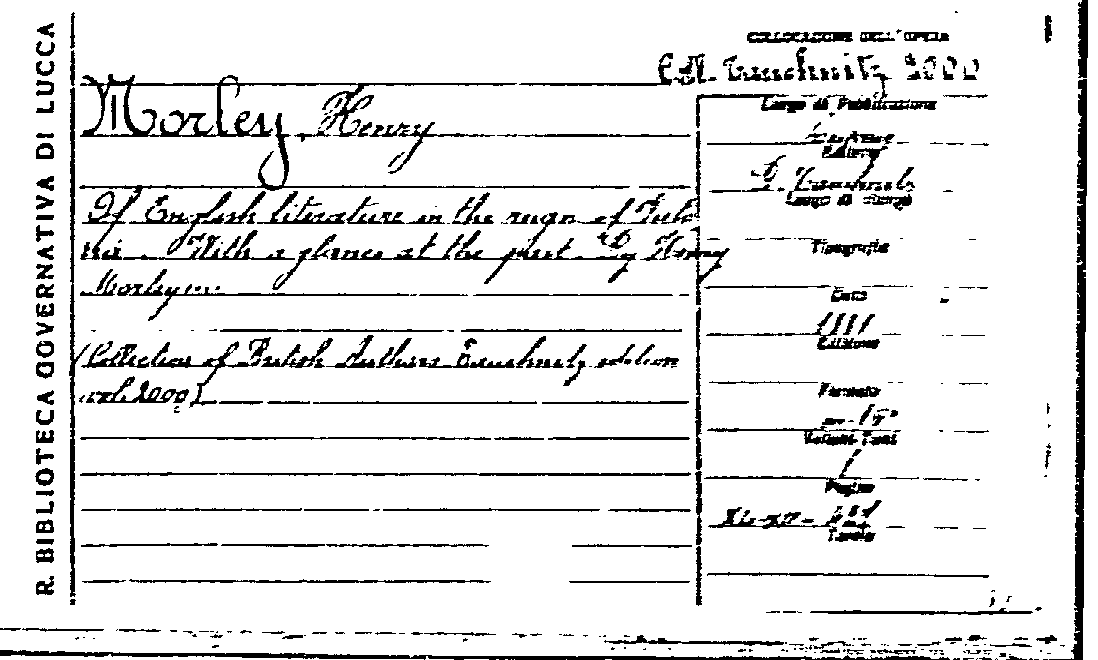 R. BIBLIOTECA GOVERNATIVA DI LUCCA
COLLOCAZIONE DELL'OPERA
Coll. Tauchnitz 2000
Morley, Henry
Of English literature in the reign of Victo
ria. With a glance at the past. By Henry
Morley
(Collection of British Authors Tauchnitz edition
vol. 2000)
Luogo di Pubblicazione
Editore
B. Tauchnitz
Luogo di stampa
Tipografia
Data
1881
Edizione
Formato
in-16°
Volumi-Tomi
1
Pagine
Tavole